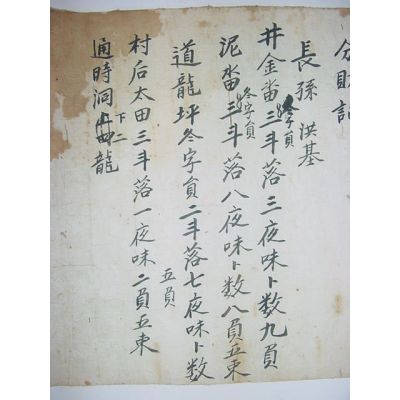 分財記
長孫 洪基
井金畓終字員三斗落三夜味卜数九員
泥畓冬字員三斗落八夜味卜数八員五束
道龍坪冬字員二斗落七夜味卜数五員
村后太田三斗落一夜味二員五束
通時洞下二龍